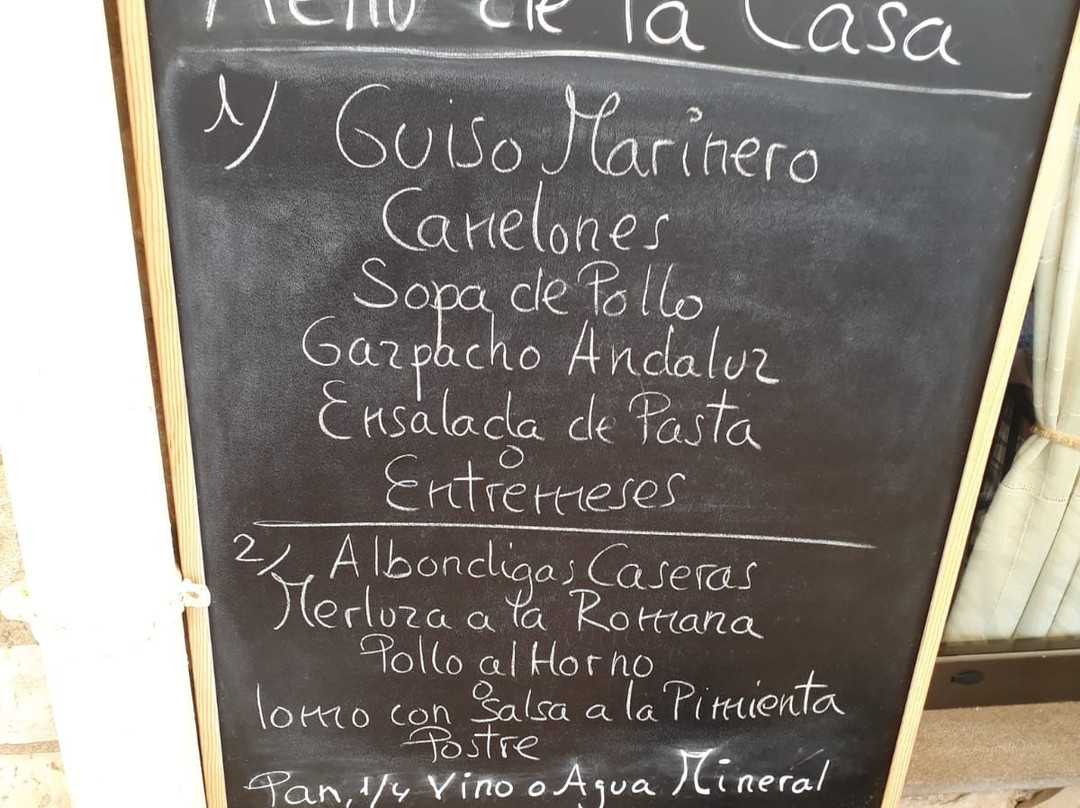 Menu de la Casa
1/ Guiso Marinero
Canelones
Sopa de Pollo
Gazpacho Andaluz
Ensalada de Pasta
o
Entremeses
2/ Albondigas Caseras
Merluza a la Romana
Pollo al Horno
o
lomo con Salsa a la Pimienta
Postre
Pan, 1/4 Vino o Agua Mineral